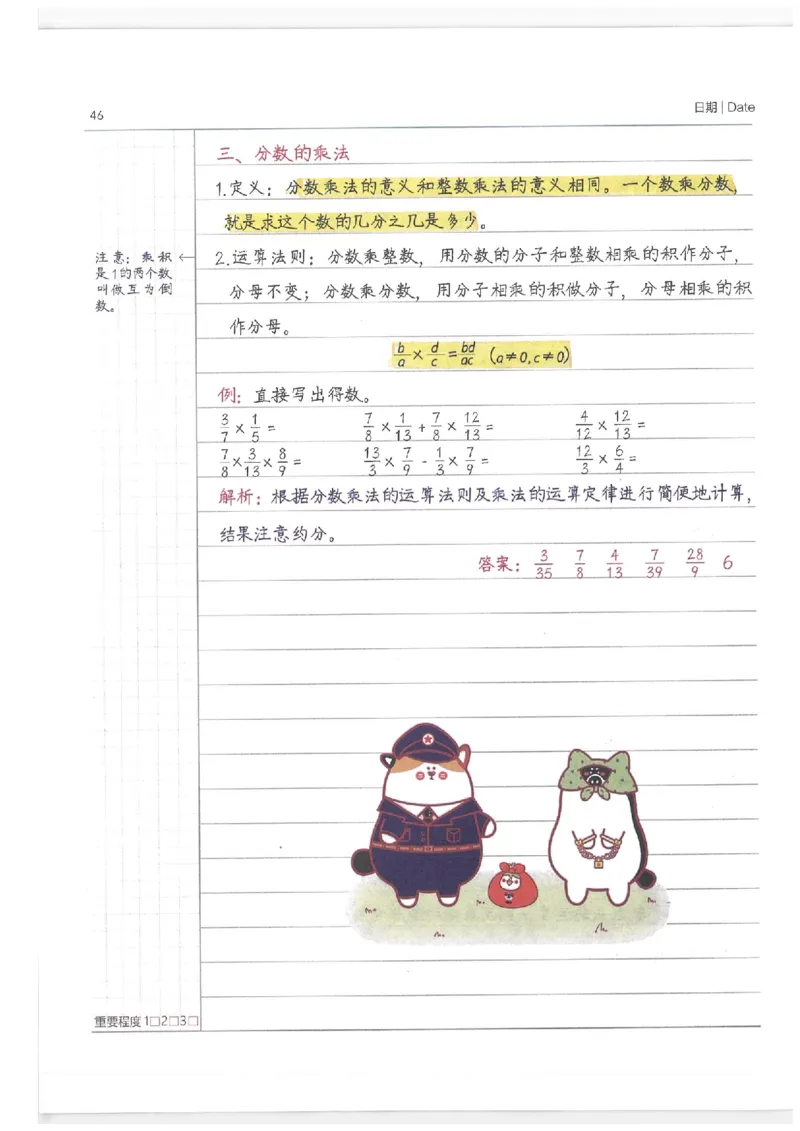 46
日期 | Date
三、分数的乘法
1.定义：分数乘法的意义和整数乘法的意义相同。一个数乘分数，
就是求这个数的几分之几是多少。
注意：乘积
是1的两个数
叫做互为倒
数。
2.运算法则：分数乘整数，用分数的分子和整数相乘的积作分子，
分母不变；分数乘分数，用分子相乘的积做分子，分母相乘的积
作分母。
b/a × d/c = bd/ac (a≠0,c≠0)
例：直接写出得数。
3/7 × 1/5 = 7/8 × 1/13 + 7/8 × 12/13 = 4/12 × 12/13 =
7/8 × 3/13 × 8/9 = 13/3 × 7/9 - 1/3 × 7/9 = 12/3 × 6/4 =
解析：根据分数乘法的运算法则及乘法的运算定律进行简便地计算，
结果注意约分。
答案：3/35 7/8 4/13 7/39 28/9 6
重要程度 1□2□3□